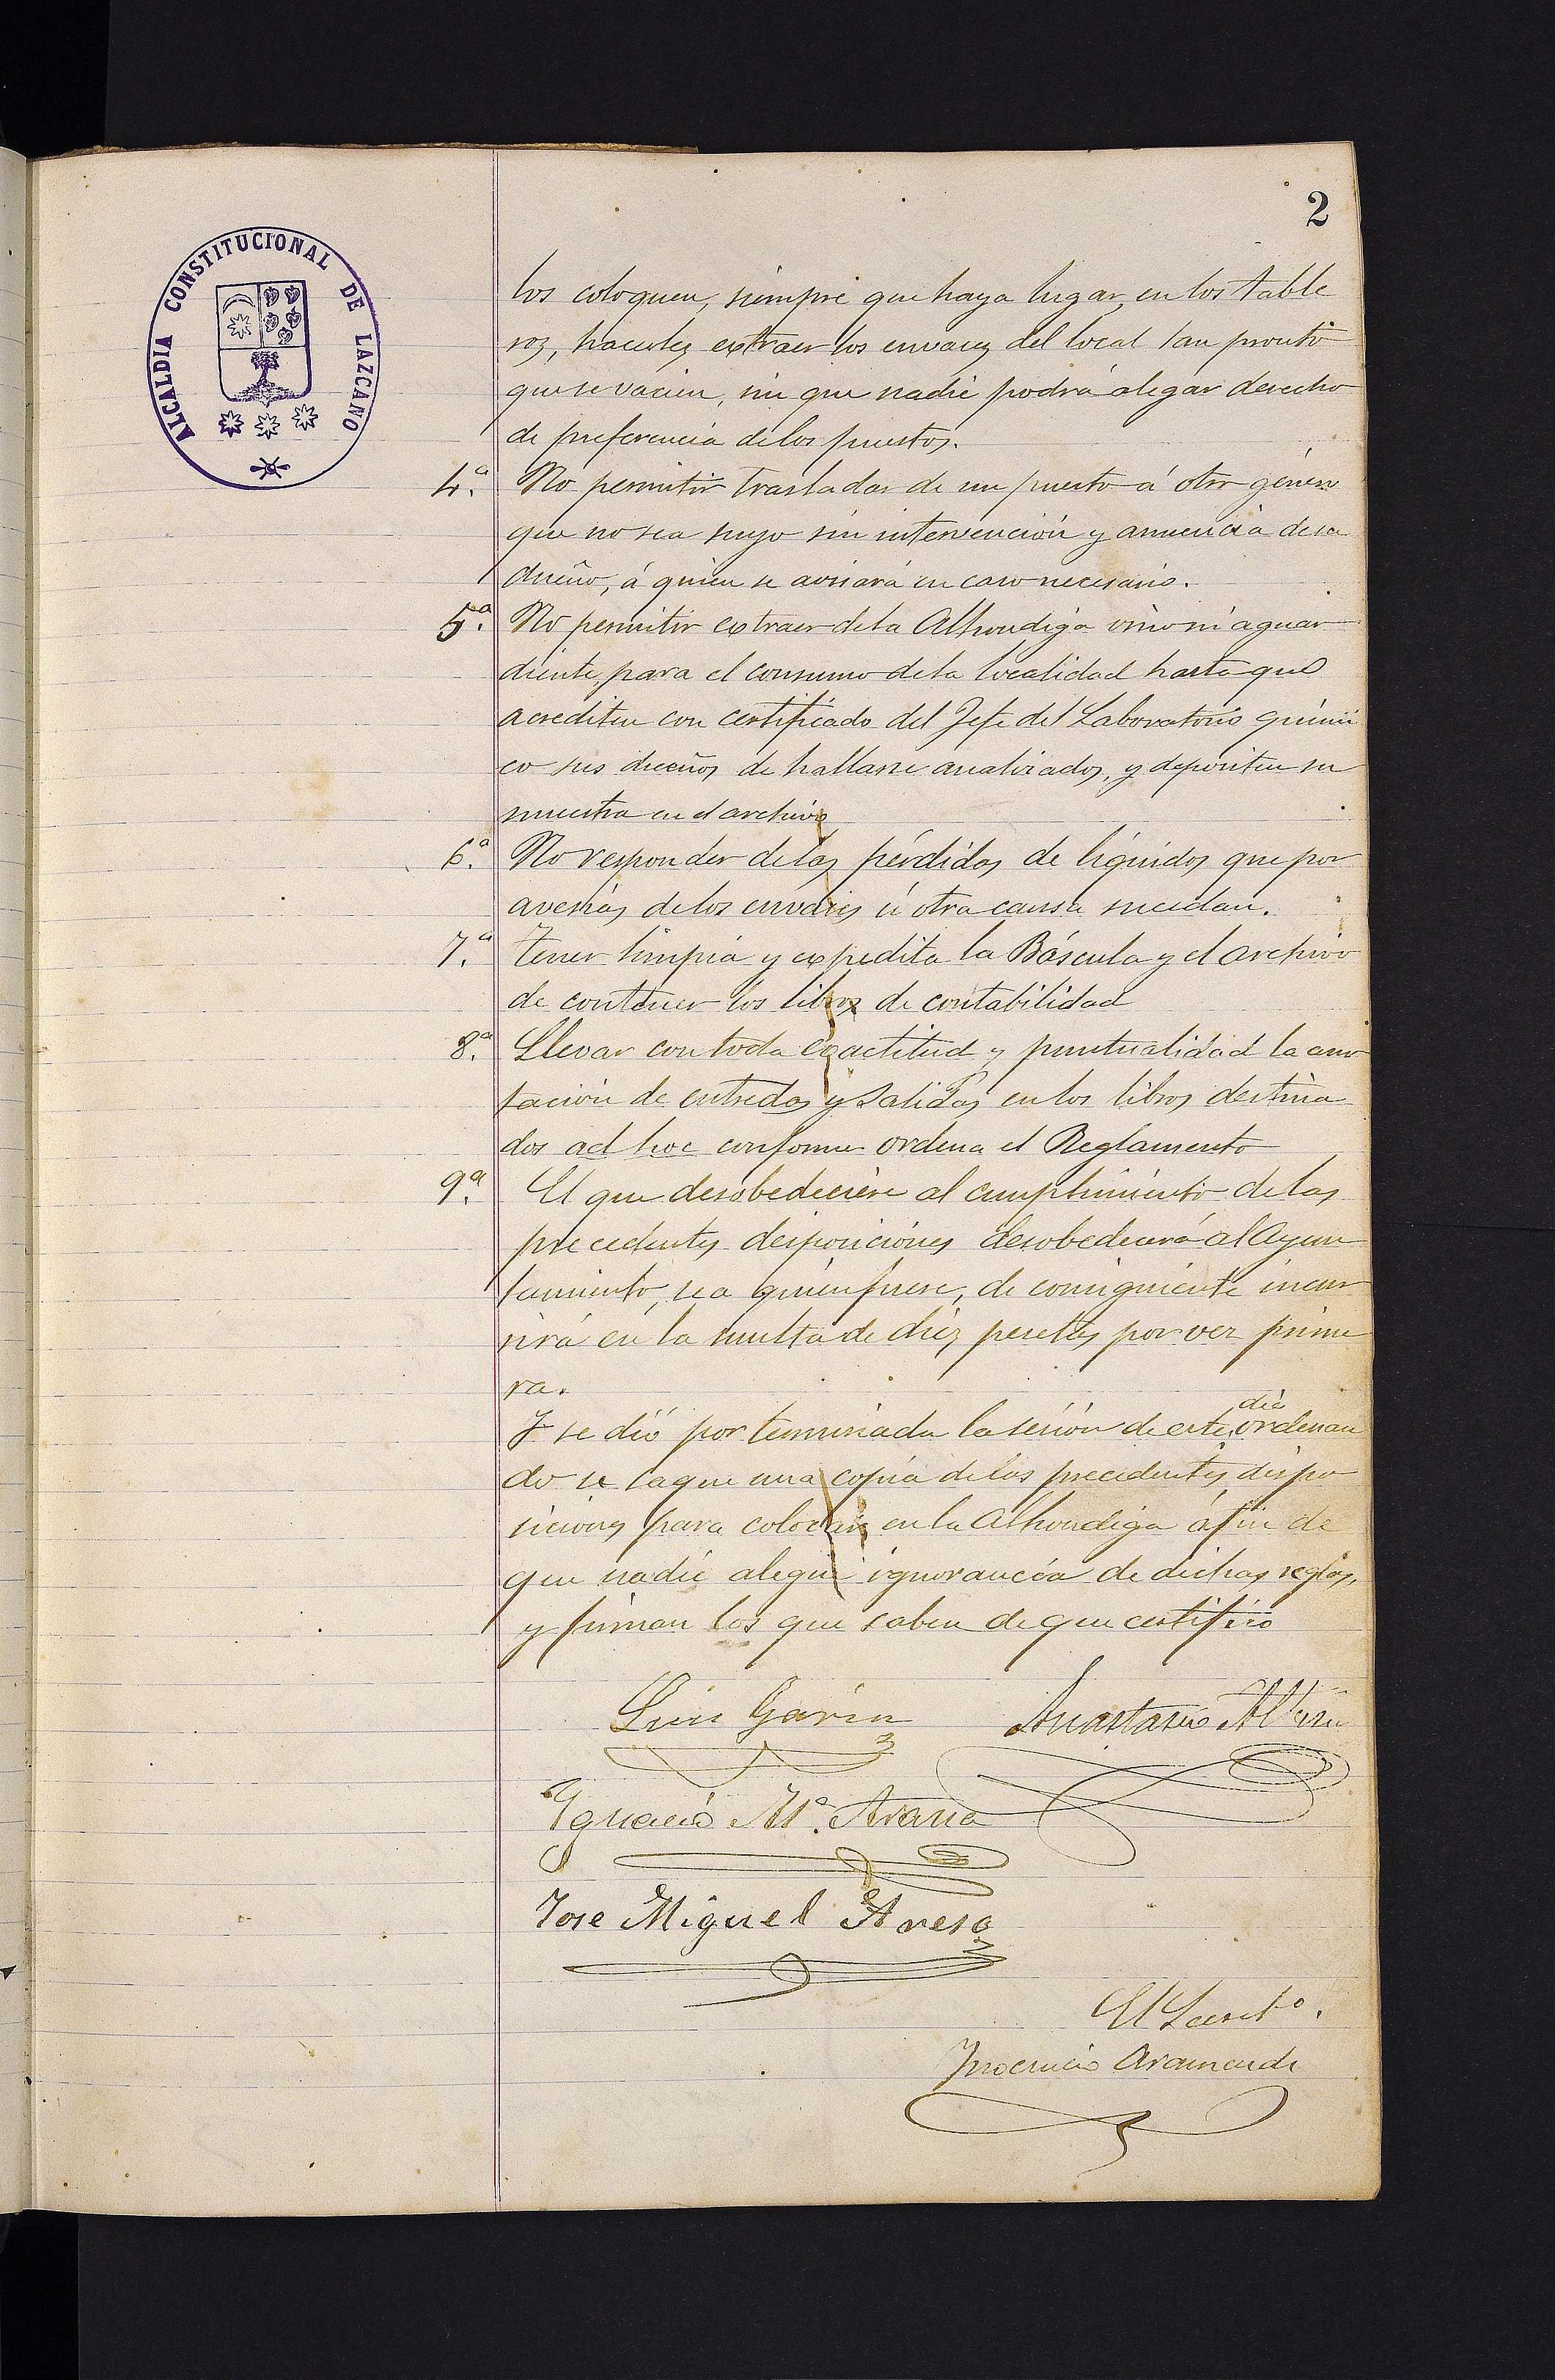 2
ALCALDIA CONSTITUCIONAL DE LAZCANO
los coloquen, siempre que haya lugar, en los table
ros, hacerles extraer los envases del local tan pronto
que se vacien, sin que nadie podrá alegar derecho
de preferencia de los puestos.
4.ª No permitir trasladar de un puesto á otro género
que no sea suyo sin intervención y anuencia de su
dueño, á quien se avisará en caso necesario.
5.ª No permitir extraer de la Alhondiga vino ni aguar
diente, para el consumo de la localidad hasta que
acrediten con certificado del Jefe del Laboratorio quimi
co sus dueños de hallarse analizados, y depositen su
muestra en el archivo
6.ª No responder de las pérdidas de liquidos que por
averias de los envases ú otra causa sucedan.
7.ª Tener limpia y expedita la Báscula y el archivo
de contener los libros de contabilidad
8.ª Llevar con toda exactitud y puntualidad la ano
tación de entradas y salidas en los libros destina
dos ad hoc conforme ordena el Reglamento
9.ª El que desobedeciere al cumplimiento de las
precedentes disposiciones desobedecerá al Ayun
tamiento, sea quien fuese, de consiguiente incur
rirá en la multa de diez pesetas por vez prime
ra.
Y se dió por terminada la sesión de este día ordenan
do se saque una copia de las precedentes dispo
siciones para colocar en la Alhondiga á fin de
que nadie alegue ignorancia de dichas reglas,
y firman los que saben de que certifico
Luis Garin Anastasio
Ygnacio M.ª Arana
Jose Miguel Aresa
El Secret.º.
Inocencio Aramendi